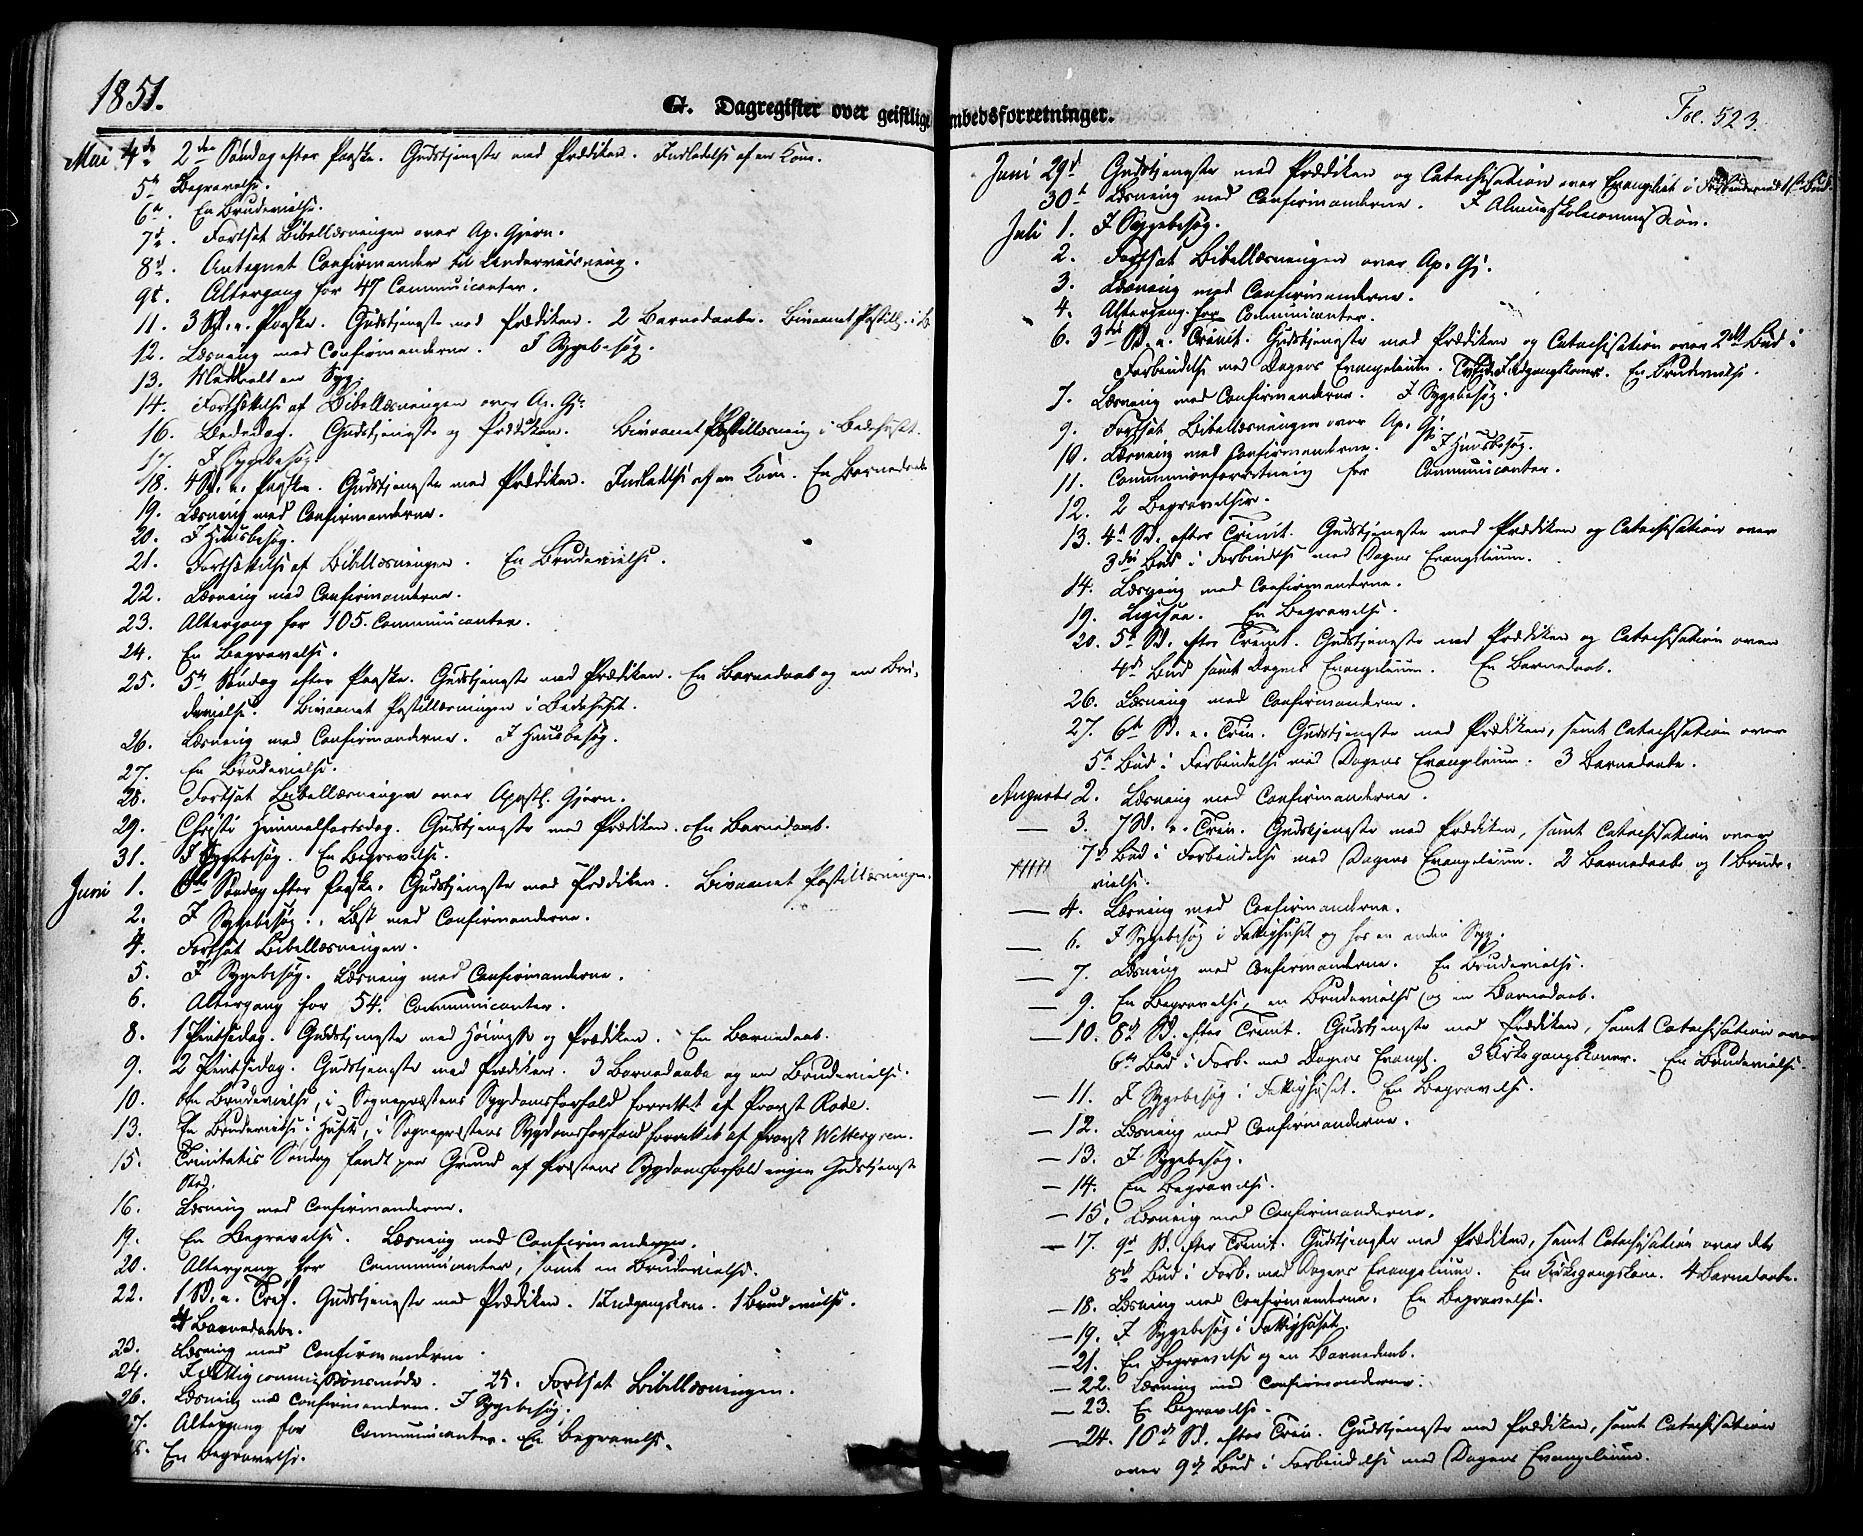 1851.
G. Dagregister over geistlige Embedsforretninger.
Fol. 523.
Mai 4de 2den Søndag efter Paaske. Gudstjeneste med Prædiken. Indledelse af en Kone.
5te Begravelse.
6te. En Brudevielse.
7de. Fortsat Bibellæsningen over Ap. Gjern.
8de. Antegnet Confirmander til Underviisning.
9de. Altergang for 47 Communicanter.
11. 3 Sd. e. Paaske. Gudstjeneste med Prædiken. 2 Barnedaabe. Bivaanet Postill. i
12. Læsning med Confirmanderne. I Sygebesøg.
13. Meddeelt en Syg.
14. Fortsættelse af Bibellæsningen over Ap. Gj.
16. Bededag. Gudstjeneste og Prædiken. Bivaanet Postillæsning i Bedehuset.
17. I Sygebesøg.
18. 4 Sd. e. Paaske. Gudstjeneste med Prædiken. Indledelse af en Kone. En Barnedaab
19. Læsning med Confirmanderne.
20. I Huusbesøg.
21. Fortsættelse af Bibellæsningen. En Brudevielse.
22. Læsning med Confirmanderne.
23. Altergang for 105. Communicanter.
24. En Begravelse.
25. 5te Søndag efter Paaske. Gudstjeneste med Prædiken. En Barnedaab og en Bru-
devielse. Bivaanet Postillæsningen i Bedehuset.
26. Læsning med Confirmanderne. I Huusbesøg.
27. En Brudevielse.
28. Fortsat Bibellæsningen over Apostl. Gjern.
29. Christi Himmelfartsdag. Gudstjeneste med Prædiken. En Barnedaab.
31. I Sygebesøg. En Begravelse.
Juni 1. 6te Søndag efter Paaske. Gudstjeneste med Prædiken. Bivaanet Postillæsningen.
2. I Sygebesøg. Læst med Confirmanderne.
4. Fortsat Bibellæsningen.
5. I Sygebesøg. Læsning med Confirmanderne.
6. Altergang for 54. Communicanter.
8. 1 Pintsedag. Gudstjeneste med Høimesse og Prædiken. En Barnedaab.
9. 2 Pintsedag. Gudstjeneste med Prædiken. 3 Barnedaabe og en Brudevielse.
10. En Brudevielse, i Sognepræstens Sygdomsforfald forrettet af Provst Rode.
13. En Brudevielse i Huset, i Sognepræstens Sygdomsforfald forrettet af Provst Wettergren.
15. Trinitatis Søndag fandt paa Grund af Præstens Sygdomsforfald ingen Gudstjeneste
Sted.
16. Læsning med Confirmanderne.
19. En Begravelse. Læsning med Confirmanderne.
20. Altergang for Communicanter, samt en Brudevielse.
22. 1 Sd. e. Tref. Gudstjeneste med Prædiken. 1 Indgangskone. 1 Brudevielse.
4 Barnedaabe.
23. Læsning med Confirmanderne.
24. I Fattigcommissionsmøde. 25. Fortsat Bibellæsningen.
26. Læsning med Confirmanderne. I Sygebesøg.
27. Altergang for Communicanter. En Begravelse.
28. En Begravelse.
Juni 29de Gudstjeneste med Prædiken og Catechisation over Evangeliet i Forbindelse med 1ste Bud.
30te Læsning med Confirmanderne. I Almueskolecommission.
Juli 1. I Sygebesøg.
2. Fortsat Bibellæsningen over Ap. Gj.
3. Læsning med Confirmanderne.
4. Altergang for Communicanter.
6. 3die Sd. e. Trinit. Gudstjeneste med Prædiken og Catechisation over 2det Bud i
Forbindelse med Dagens Evangelium. Tvende Indgangskoner. En Brudevielse.
7. Læsning med Confirmanderne. I Sygebesøg.
9. Fortsat Bibellæsningen over Ap. Gj.
10. Læsning med Confirmanderne. I Huusbesøg.
11. Communionforretning for Communicanter.
12. 2 Begravelser.
13. 4de Sd. efter Trinit. Gudstjeneste med Prædiken og Catechisation over
3die Bud i Forbindelse med Dagens Evangelium.
14. Læsning med Confirmanderne.
19. En Begravelse.
20. 5te Sd. efter Trinit. Gudstjeneste med Prædiken og Catechisation over
4de Bud samt Dagens Evangelium. En Barnedaab.
26. Læsning med Confirmanderne.
27. 6te Sd. e. Trin. Gudstjeneste med Prædiken, samt Catechisation over
5te Bud i Forbindelse med Dagens Evangelium. 3 Barnedaabe.
Augusti 2. Læsning med Confirmanderne.
— 3. 7 Sd. e. Trin. Gudstjeneste med Prædiken, samt Catechisation over
7de Bud i Forbindelse med Dagens Evangelium. 2 Barnedaabe og 1 Brude-
vielse.
— 4. Læsning med Confirmanderne.
— 6. I Sygebesøg i Fattighuset og hos en anden Syg.
— 7. Læsning med Confirmanderne. En Brudevielse.
— 9. En Begravelse, en Brudevielse og en Barnedaab.
— 10. 8de Sd. efter Trinit. Gudstjeneste med Prædiken, samt Catechisation over
6te Bud i Forb. med Dagens Evangl. 3 Kirkegangskoner. En Brudevielse.
— 11. I Sygebesøg i Fattighuset. En Begravelse.
— 12. Læsning med Confirmanderne.
— 13. I Sygebesøg.
— 14. En Begravelse.
— 15. Læsning med Confirmanderne.
— 17. 9de Sd. efter Trinit. Gudstjeneste med Prædiken, samt Catechisation over det
8de Bud i Forb. med Dagens Evangelium. En Kirkegangskone. 4 Barnedaabe.
— 18. Læsning med Confirmanderne. En Begravelse.
— 19. I Sygebesøg i Fattighuset.
— 21. En Begravelse og en Barnedaab.
— 22. Læsning med Confirmanderne.
— 23. En Begravelse.
— 24. 10de Sd. efter Trin. Gudstjeneste med Prædiken, samt Catechisation
over 9de Bud i Forbindelse med Dagens Evangelium.